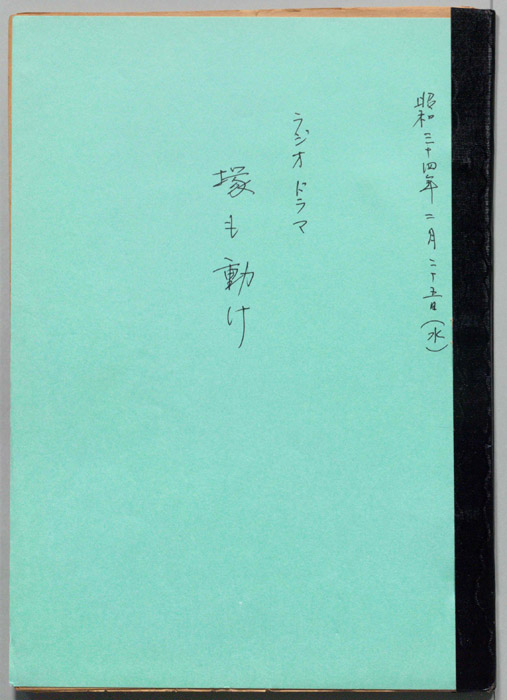 昭和三十四年二月二十五日(水)
ラジオドラマ
塚も動け